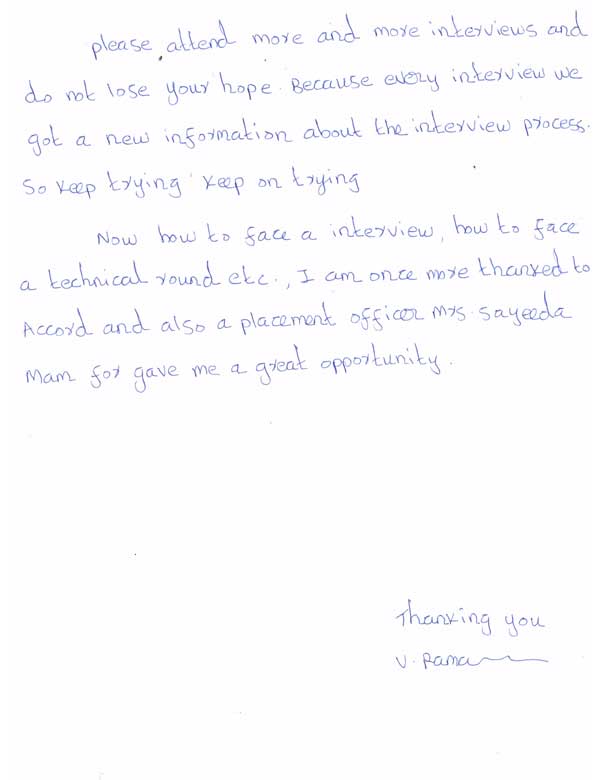 please attend more and more interviews and
do not lose your hope. Because every interview we
got a new information about the interview process.
So keep trying keep on trying
Now how to face a interview, how to face
a technical round etc., I am once more thanked to
Accord and also a placement officer Mrs. Sayeeda
Mam for gave me a great opportunity.
Thanking you
V. Rama